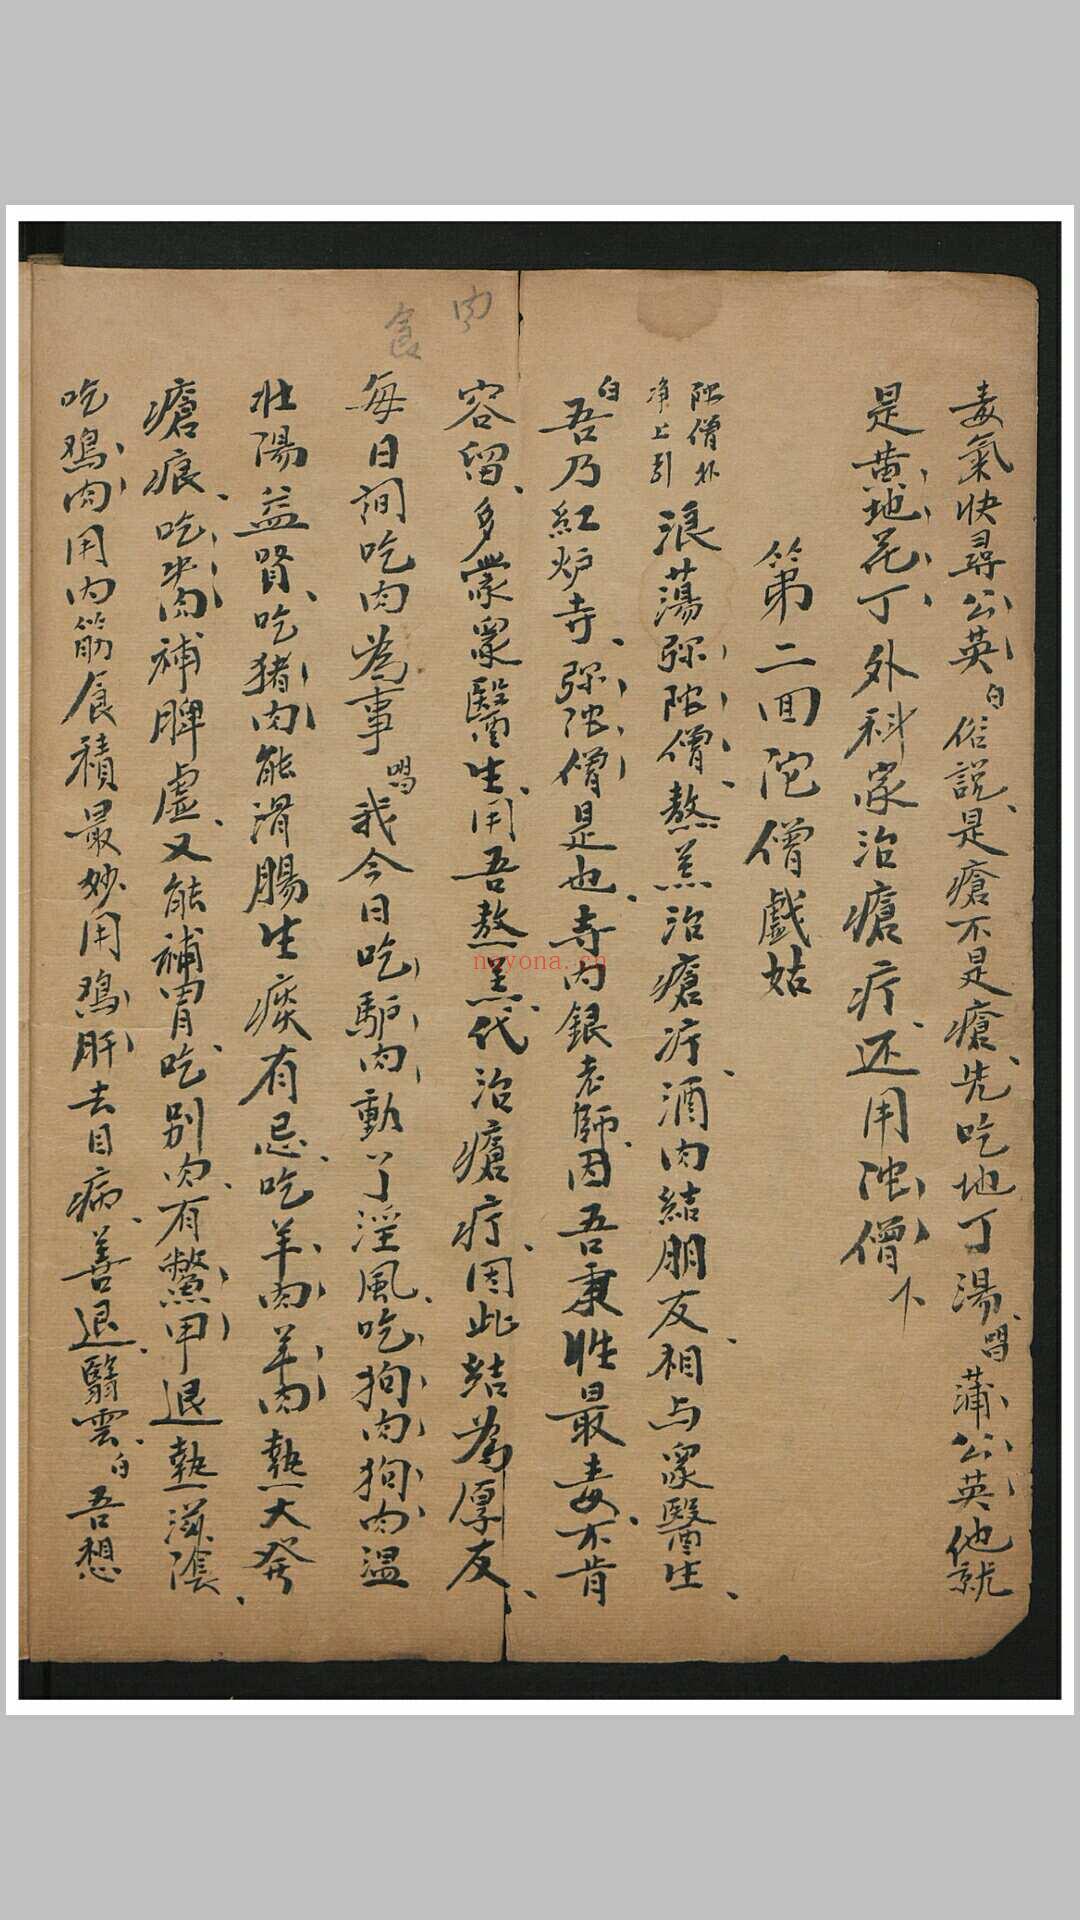 毒氣快尋公英白俗說是瘡不是瘡先吃地丁湯唱蒲公英他就
是黃地花丁外科家治瘡疔还用陀僧下
第二回陀僧戲姑
陀僧外
净上引
浪蕩弥陀僧熬羔治瘡疔酒肉結朋友相与衆醫生
白吾乃紅炉寺弥陀僧是也寺内銀老師因吾秉性最毒不肯
容留多蒙衆醫生用吾熬羔代治瘡疔因此結為厚友
每日間吃肉為事唱我今日吃驢肉動了淫風吃狗肉狗肉温
壯陽益腎吃猪肉能滑腸生痰有忌吃羊肉羊肉熱大發
瘡痕吃牛肉補脾虛又能補胃吃别肉有鱉甲退熱滋陰
吃鷄肉用内筋食積最妙用鷄肝去目病善退翳雲白吾想
肉
食
nayona.cn